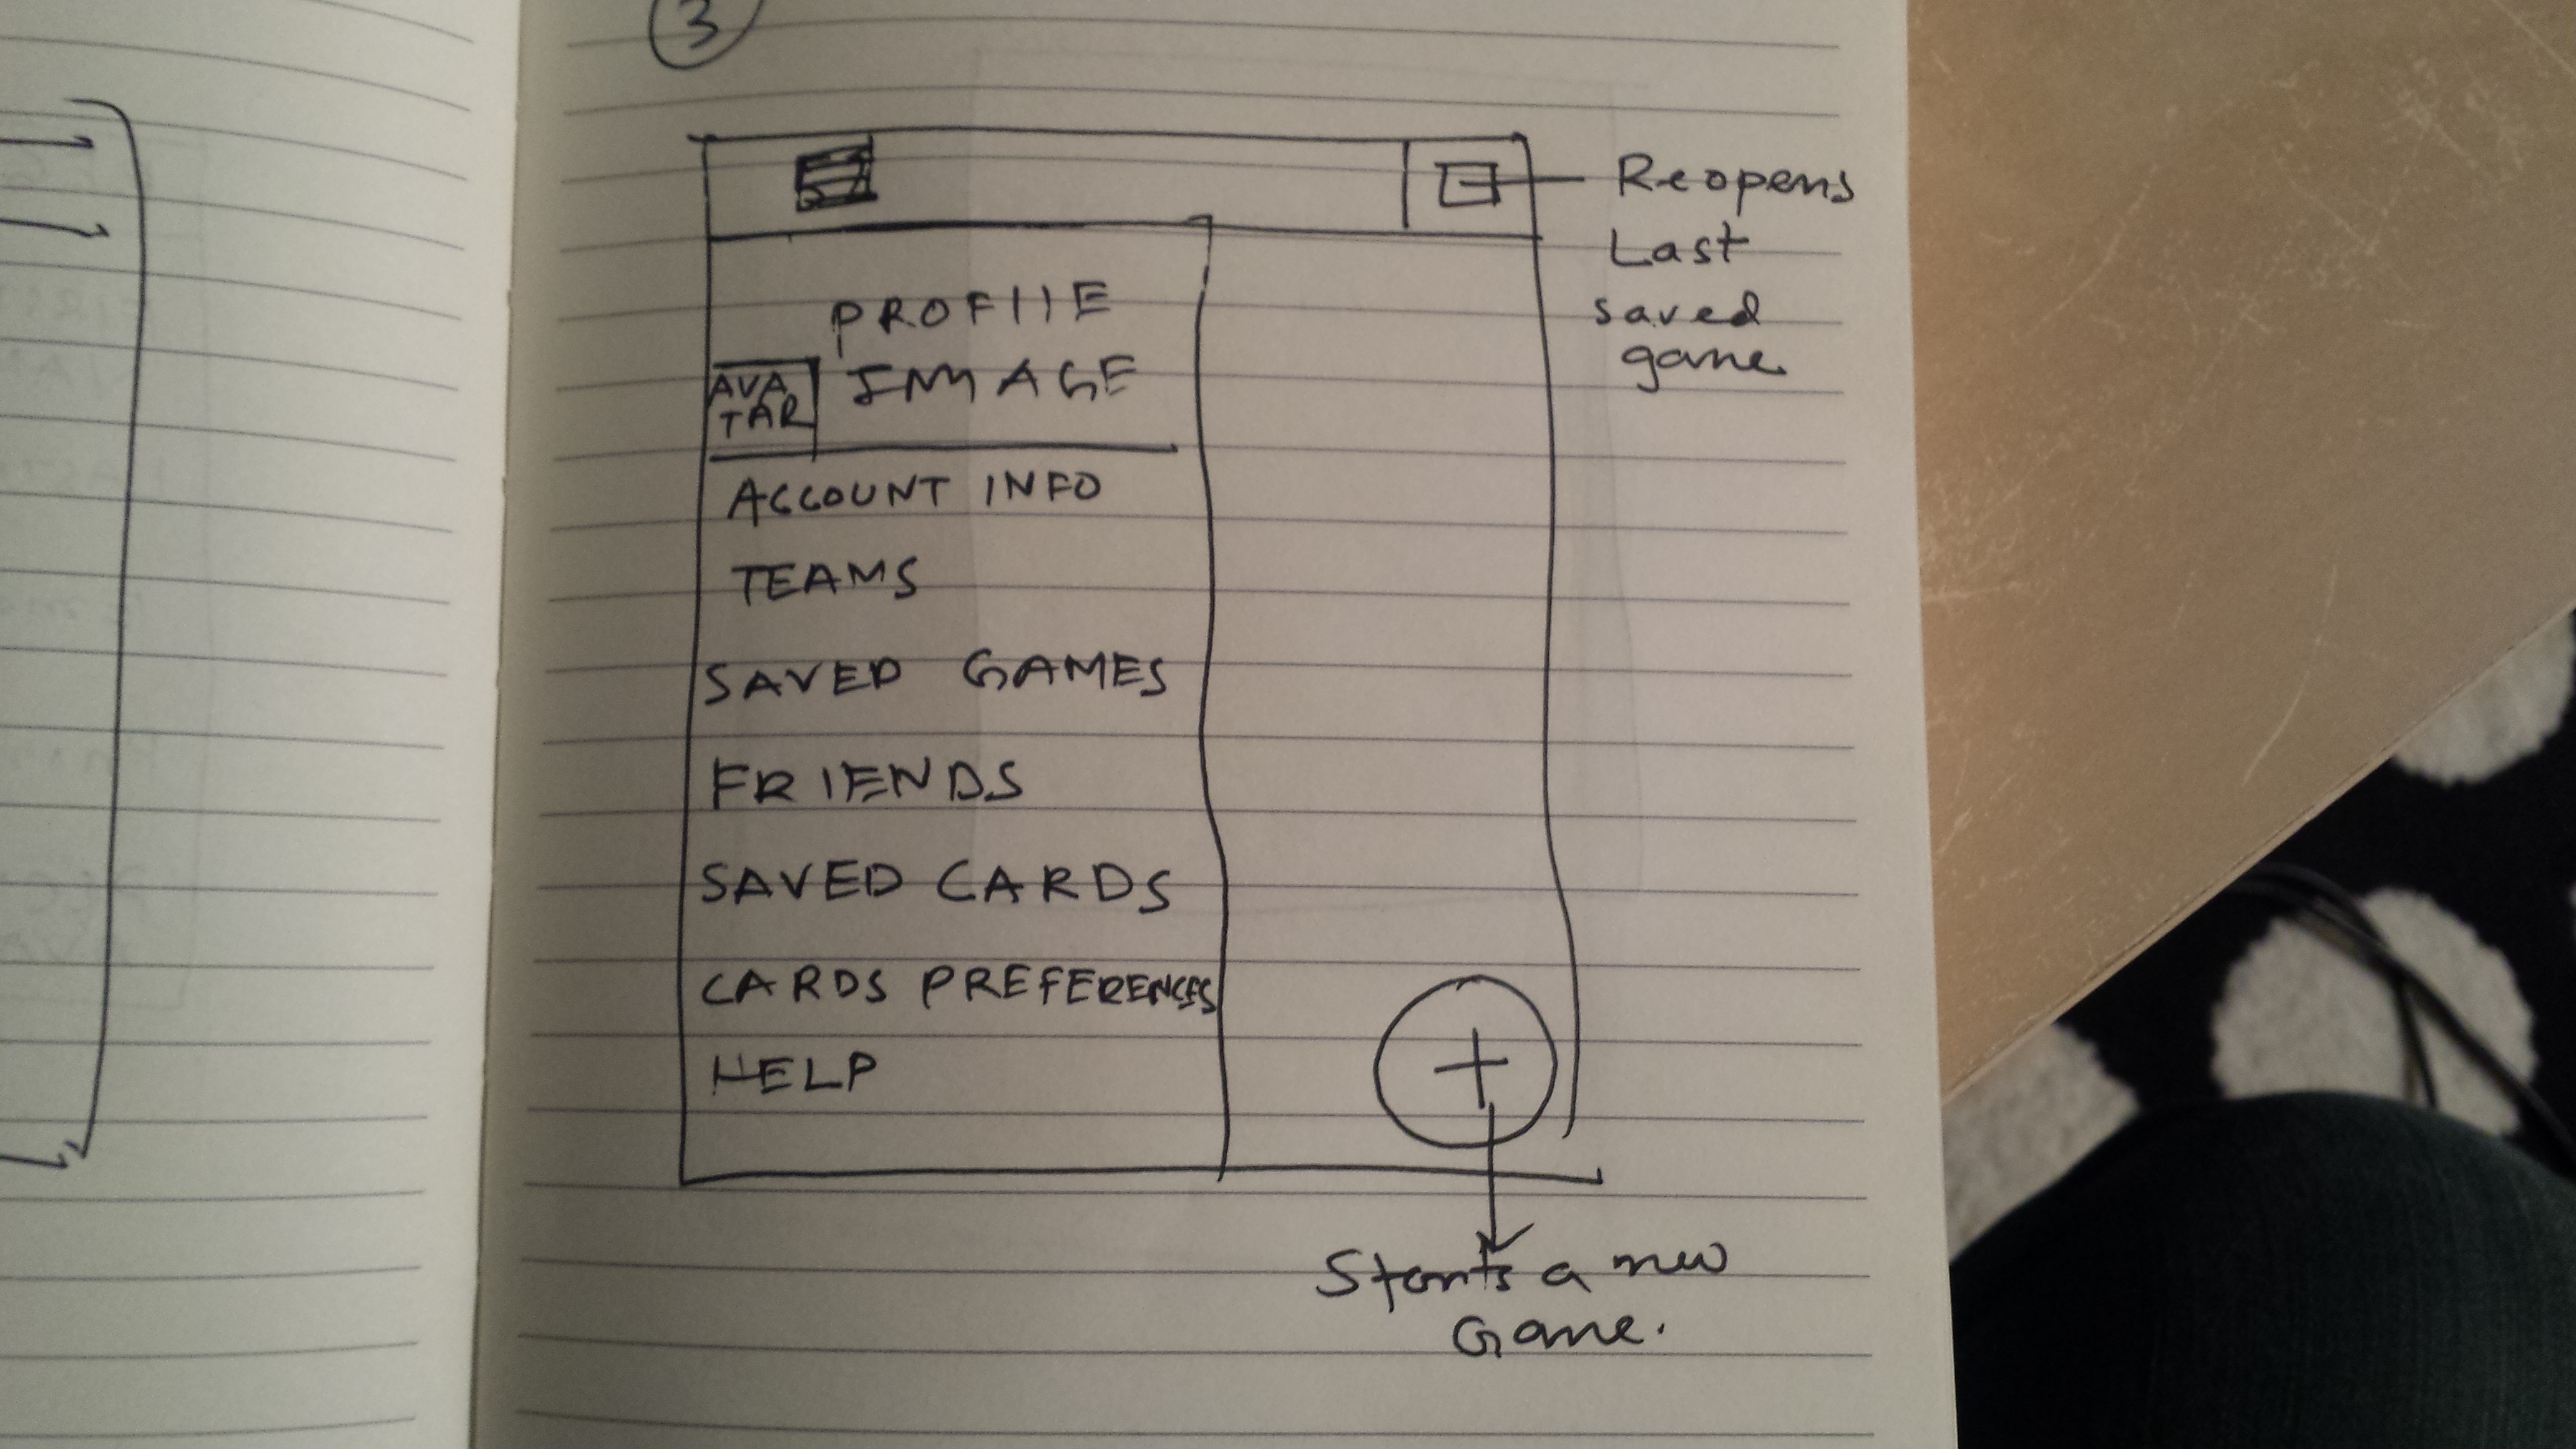 3
Reopens
Last
saved
game.
PROFIIE
IMAGE
AVA
TAR
ACCOUNT INFO
TEAMS
SAVED GAMES
FRIENDS
SAVED CARDS
CARDS PREFERENCES
HELP
+
Starts a new
Game.